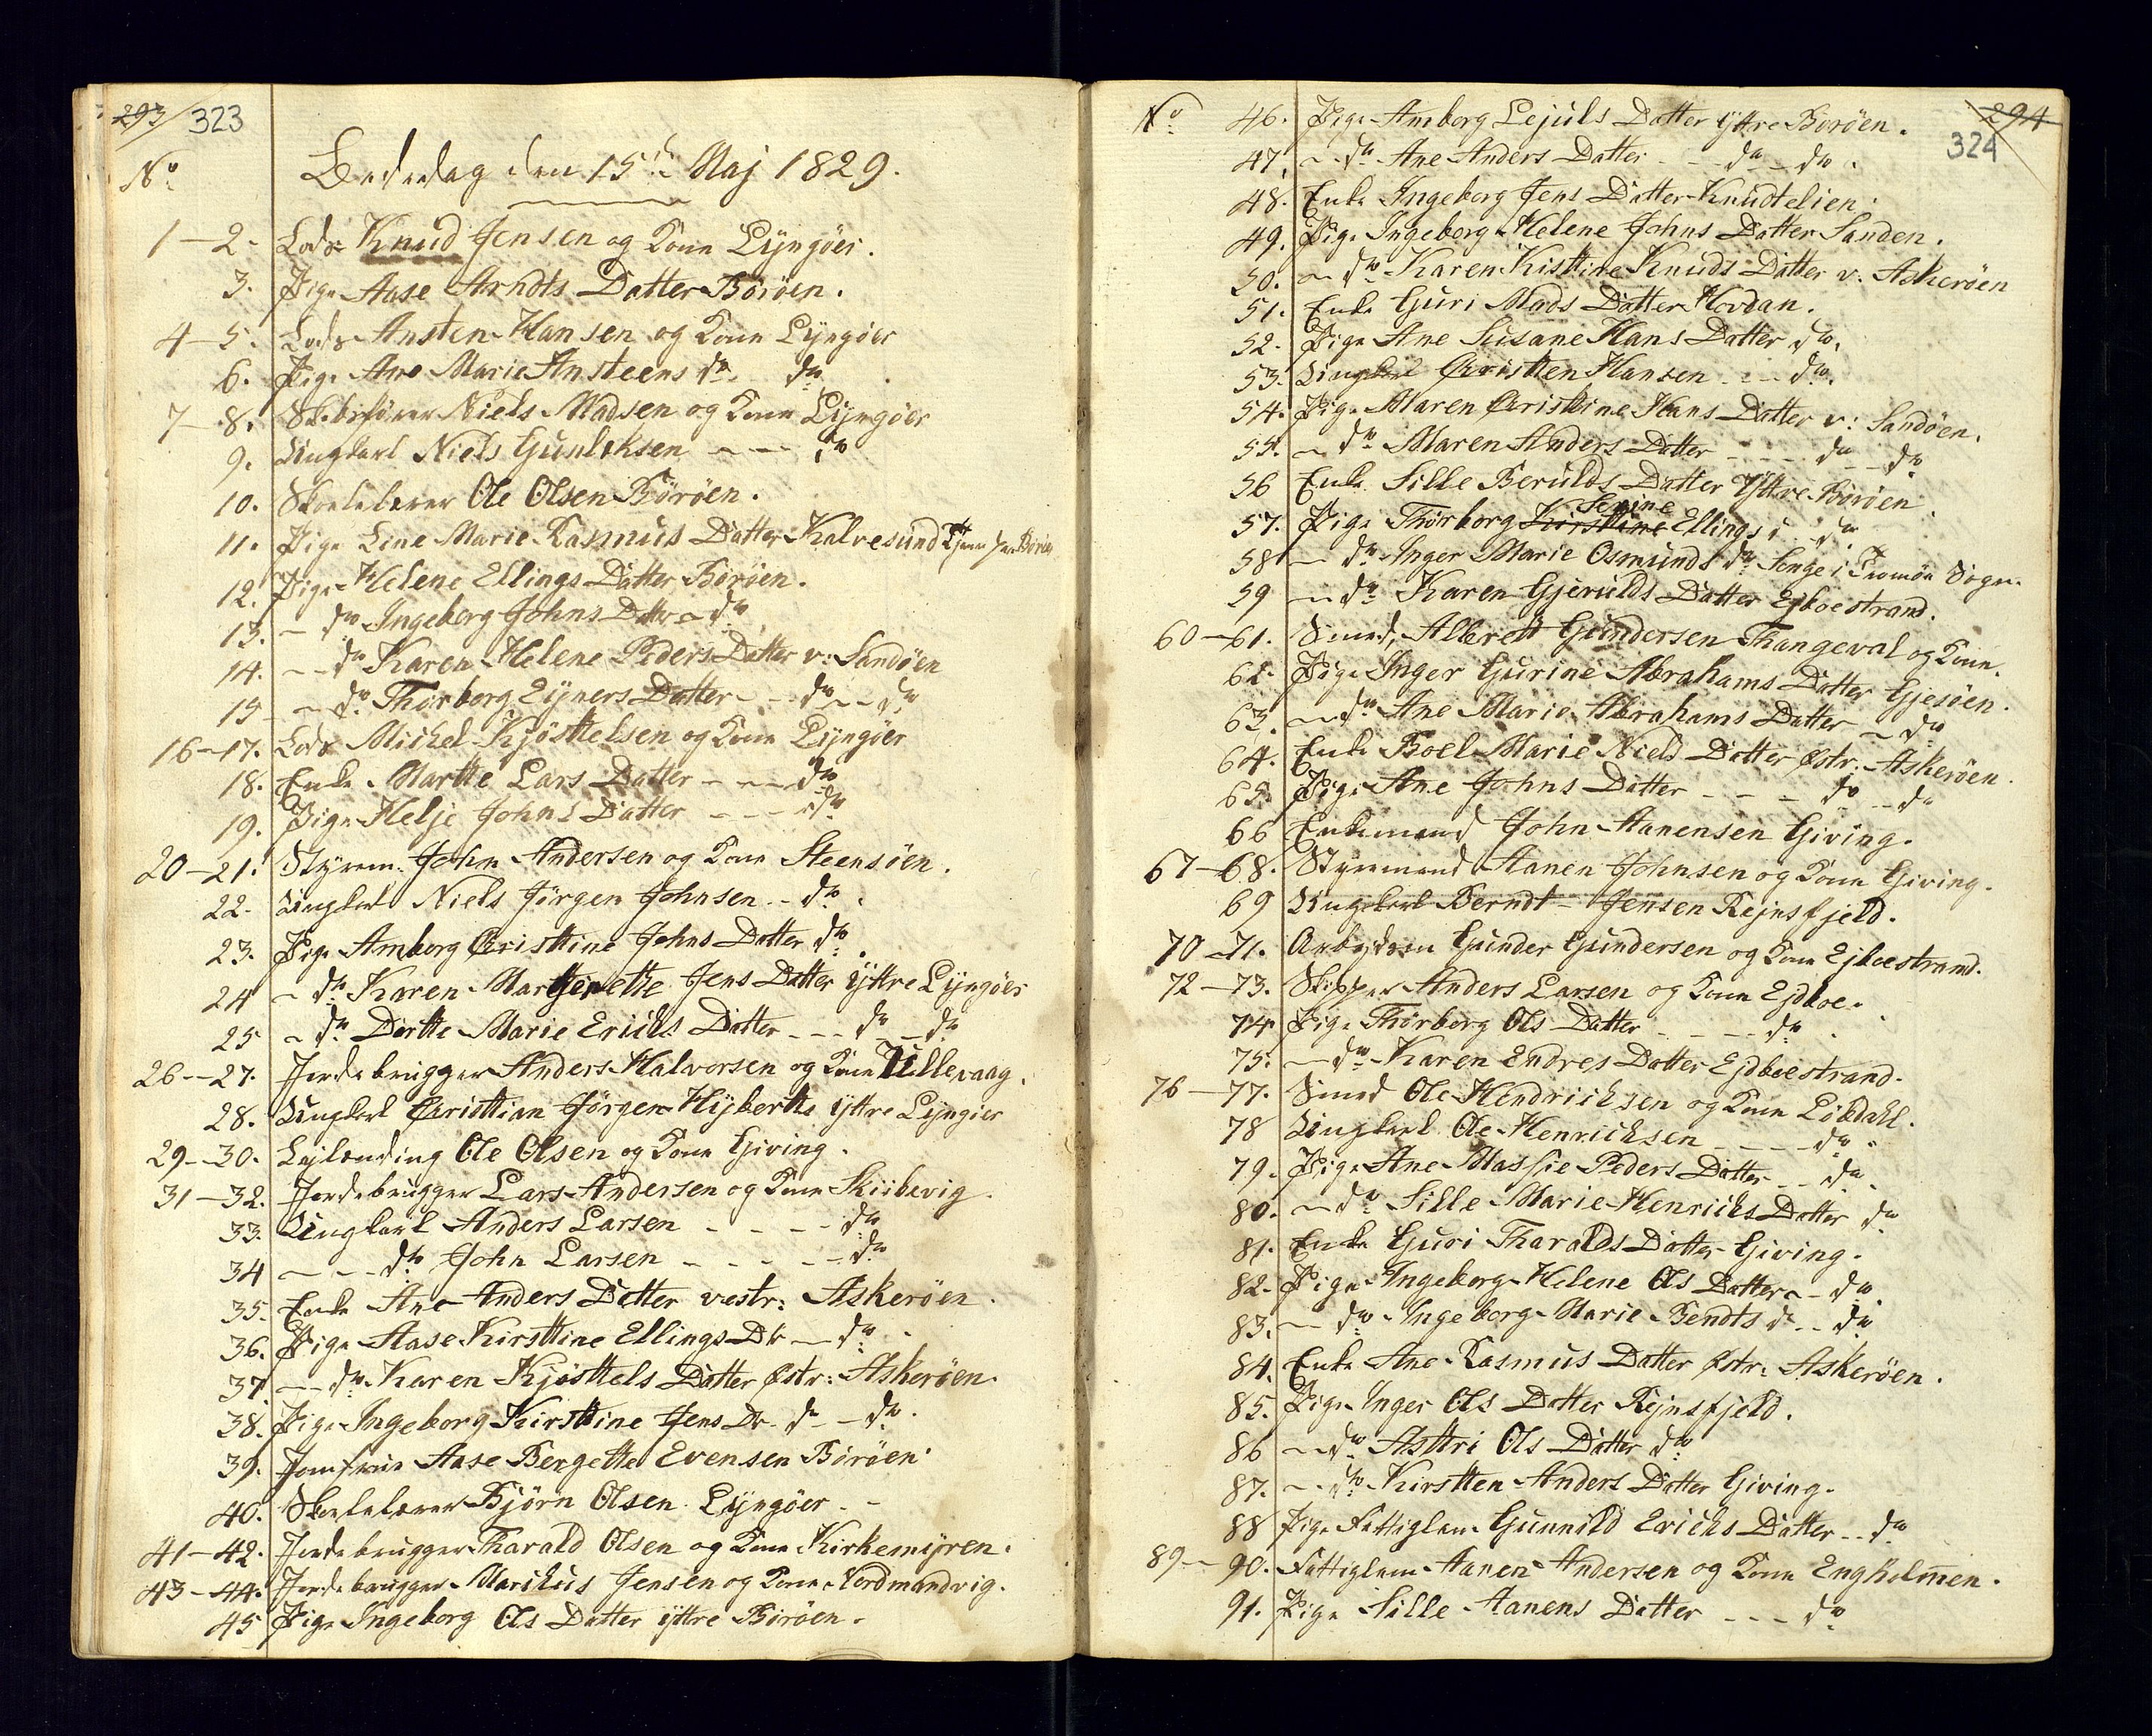 293 323
No
Bededag den 15de Maj 1829.
1-2. Lods Knud Jensen og Kone Lyngöer.
3. Pige Aase Arndts Datter Boröen.
4-5. Lods Ansten Hansen og Kone Lyngöer
6. Pige Ane Marie Ansteens do. do
7-8. Skibsfører Niels Madsen og Kone Lyngöer
9. Ungkarl Niels Gunleksen - - - do
10. Skolelærer Ole Olsen Böröen.
11. Pige Line Marie Rasmus Datter Kalvesund
12. Pige Helene Ellings Datter Böröen.
13. - do Ingeborg Johns Datter - do
14. - - do Karen Helene Peders Datter v: Sandöen
15 - do. Thorborg Eyners Datter - - do - - do
16-17. Lods Michel Kjösttelsen og Kone Lyngöer
18. Enke Marthe Lars Datter - - - do
19. Pige Helje Johns Datter - - - do
20-21. Styrm. John Andersen og Kone Steensöen.
22. Ungkarl Niels Jörgen Johnsen - - do.
23. Pige Amborg Cristtine Johns Datter do.
24 - do Karen Martgenette Jens Datter ÿttre Lyngöer
25 - do Dortte Marie Erichs Datter - - - do - do
26--27. Jordebrugger Anders Halvorsen og Kone Tillevaag.
28. Ungkarl Cristtian Jörgen Hyberths ÿttre Lyngöer
29--30. Lejlænding Ole Olsen og Kone Giving.
31-32. Jordebrugger Lars Andersen og Kone Skiibevig.
33. Ungkarl Anders Larsen - - - - do
34 - - - do John Larsen - - - - - do
35. Enke Ane Anders Datter vestr: Askeröen.
36. Pige Aase Kirsttine Ellings Dtr - do.
37 - - do Karen Kjösttels Datter östr: Askeröen.
38. Pige Ingeborg Kirsttine Jens Dtr. do - do.
39. Jomfrue Aase Bergette Evensen Böröen.
40. Skolelærer Bjørn Olsen Lyngöer. -
41-42. Jordebrugger Tharald Olsen og Kone Kirkemyren.
43-44. Jordebrugger Marikus Jensen og Kone Nordmandvig.
45 Pige Ingeborg Ols Datter ÿttre Böröen.
294
324
No 46. Pige Amborg Lejuls Datter ÿttre Boröen.
47. - - do Ane Anders Datter - - do - do.
48. Enke Ingeborg Jens Datter Knudtelien.
49. Pige Ingeborg Helene Johns Datter Sanden.
50. - do Karen Kisttine Knuds Datter v: Askeröen
51. Enke Guri Mads Datter Hovdan.
52. Pige Ane Susane Hans Datter do.
53. Ungkarl Cristten Hansen - - - do.
54. Pige Maren Cristtine Hans Datter v: Sandöen.
55. - do Maren Anders Datter - - - do - do.
56 Enke Sille Berulds Datter Yttre Böröen.
Serine
57. Pige Thorborg Kirsttine Ellings do
58 - do Inger Marie Osmunds do Songe i Tromöe Sogn.
59 - - do Karen Gjerulds Datter Ejboestrand.
60-61. Smed, Albrett Gundersen Thangeval og Kone.
62. Pige Inger Gurine Abrahams Datter Gjesöen.
63. - - do Ane Marie Abrahams Datter - do
64. Enke Boel Marie Niels Datter östr: Askeröen.
65. Pige Ane Johns Datter - - - do - - do
66 Enkemand John Aanensen Giving.
67-68. Styremand Aanen Johnsen og Kone Giving.
69 Ungkarl Berndt Jensen Rejnsfjeld.
70-71. Arbejdsm Gunder Gundersen og Kone Ejboestrand.
72-73. Skipper Anders Larsen og Kone Ejdboe.
74. Pige Thorborg Ols Datter - - - - do.
75. - do Karen Endres Datter Ejdboestrand.
76-77. Smed Ole Hendrichsen og Kone Löddahl.
78 Ungkarl Ole Henrichsen - - - - do.
79. Pige Ane Massie Peders Datter - - do.
80. - do Sille Marie Henrichs Datter do
81. Enke Guri Tharalds Datter Giving.
82. Pige Ingeborg Helene Ols Datter - - do.
83. - do Ingeborg Marie Bendts d - - do
84. Enke Ane Rasmus Datter östr: Askeröen.
85. Pige Inger Ols Datter Rejnsfjeld.
86 - - do Asttri Ols Datter do
87. - - do Kirstten Anders Datter Giving.
88 Pige Fattiglem. Gunnild Erichs Datter - - do
89-90. Fattiglem Aanen Andersen og Kone Engholmen.
91. Pige Sille Aanens Datter - - - do